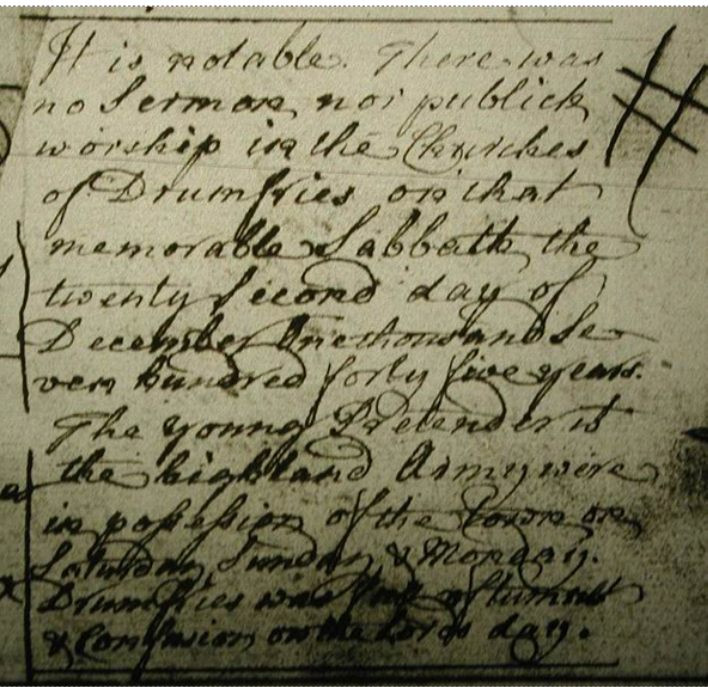 It is notable. There was
no Sermon, nor publick
worship in the Churches
of Drumfries on that
memorable Sabbath, the
twenty second day of
December One thousand Se-
ven hundred forty five years.
The young Pretender &
the highland Army were
in possession of the Town on
Saturday, Sunday, & Monday.
Drumfries was full of tumult
& Confusion on the Lords day.